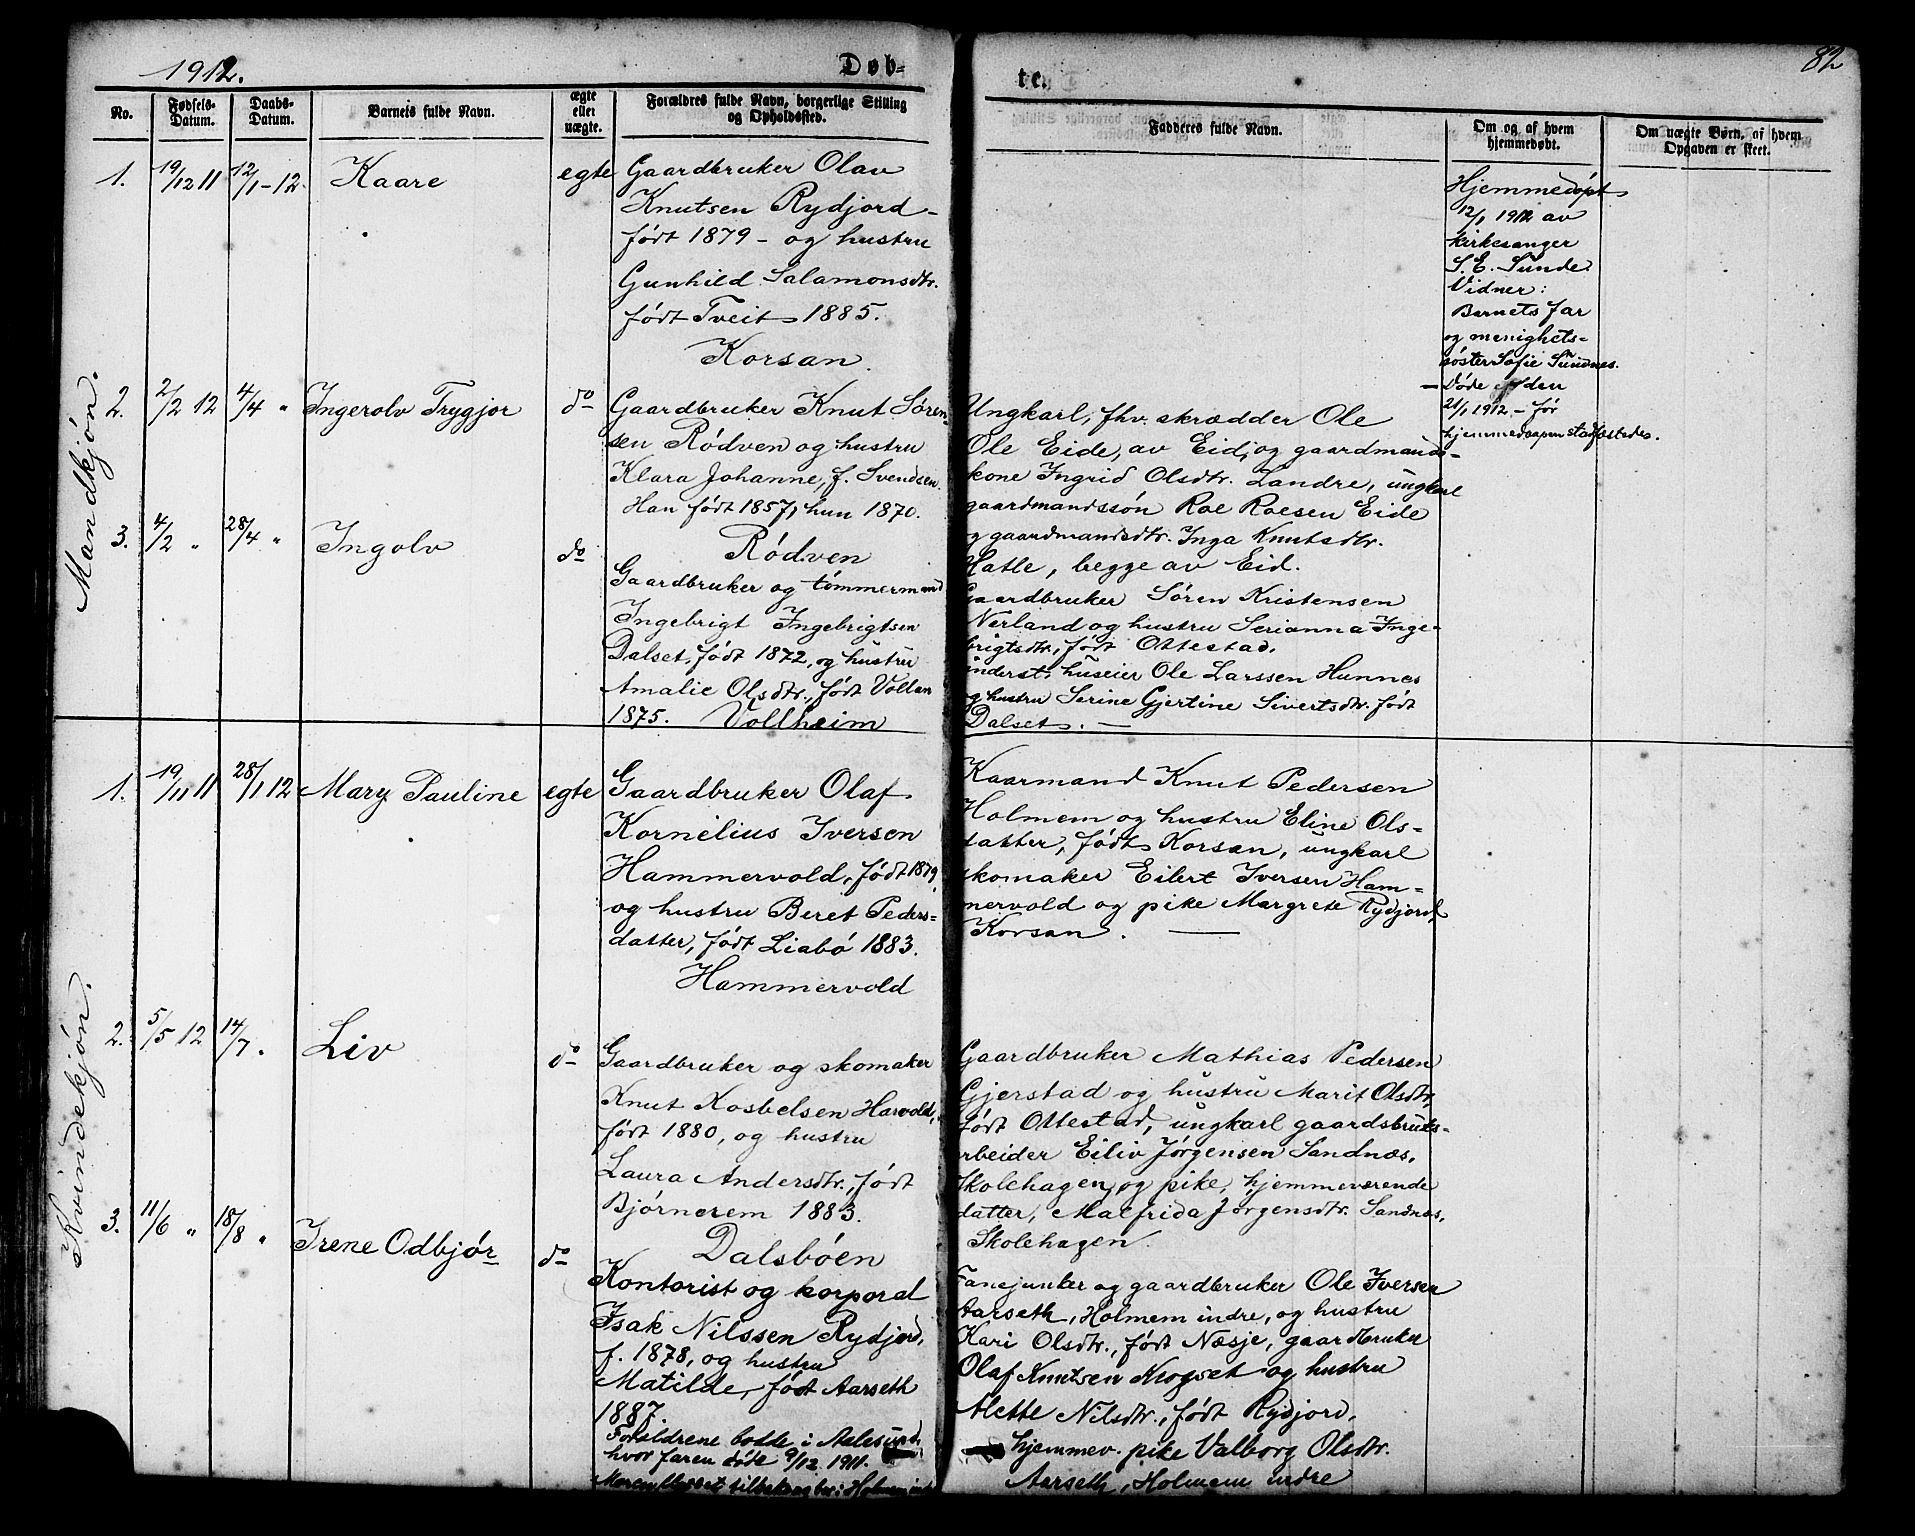 1912.
Døb-
te.
82
No.
Fødsels-
Datum.
Daabs-
Datum.
Barnets fulde Navn.
ægte
eller
uægte.
Forældres fulde Navn, borgerlige Stilling
og Opholdssted.
Fadderes fulde Navn.
Om og af hvem
hjemmedøbt.
Om uægte Børn, af hvem
Opgaven er skeet.
Mandkjøn.
1.
19/12 11
12/1-12
Kaare
egte
Gaardbruker Olav
Knutsen Rydjord -
født 1879 - og hustru
Gunhild Salamonsdtr.
født Tveit 1885.
Korsan.
Hjemmedøpt
12/1 1912 av
kirkesanger
S. E. Sunde.
Vidner:
Barnets far
og menighets-
søster Sofie Sundnes.
- Døde den
21/1 1912. - før
hjemmedaapen stadfæstedes.
2.
2/2 12
4/4 "
Ingerolv Trygjor
do
Gaardbruker Knut Søren-
sen Rødven og hustru
Klara Johanne, f. Svendsen.
Han født 1857, hun 1870.
Rødven
Ungkarl, fhv. skrædder Ole
Ole Eide, av Eid, og gaardmands-
kone Ingrid Olsdtr. Landre, ungkarl
gaardmandssøn Roe Roesen Eide
og gaardmandsdtr. Inga Knutsdtr.
Hatle, begge av Eid.
3.
4/2 "
28/4 "
Ingolv
do
Gaardbruker og tømmermand
Ingebrigt Ingebrigtsen
Dalset, født 1872, og hustru
Amalie Olsdtr., født Vollan
1875. Vollheim
Gaardbruker Søren Kristensen
Nerland og hustru Serianna Inge-
brigtsdtr., født Ottestad.
inderst, huseier Ole Larssen Hunnes
og hustru Serine Gjertine Sivertsdtr. født
Dalset. -
Kvindekjøn.
1.
19/11 11
28/1 12
Mary Pauline
egte
Gaardbruker Olaf
Kornelius Iversen
Hammervold, født 1879,
og hustru Beret Peders-
datter, født Liabø 1883.
Hammervold
Kaarmand Knut Pedersen
Holmem og hustru Eline Ols-
datter, født Korsan, ungkarl
skomaker Eilert Iversen Ham-
mervold og pike Margrete Rydjord,
Korsan. -
2.
5/5 12
14/7 .
Liv
do
Gaardbruker og skomaker
Knut Kosbelsen Harvold,
født 1880, og hustru
Laura Andersdtr., født
Bjørnerem 1883.
Dalsbøen
Gaardbruker Mathias Pedersen
Gjerstad og hustru Marit Olsdtr,
født Ottestad, ungkarl gaardsbruks-
arbeider Eiliv Jørgensen Sandnæs,
Skolehagen, og pike, hjemmeværende
datter, Malfrida Jørgensdtr. Sandnæs,
Skolehagen
3.
11/6 "
18/8 "
Irene Odbjør
do
Kontorist og korporal
Isak Nilssen Rydjord,
f. 1878, og hustru
Matilde, født Aarseth
1887.
Forældrene bodde i Aalesund,
hvor faren døde 9/12 1911.
Fanejunker og gaardbruker Ole Iversen
Aarseth, Holmem indre, og hustru
Kari Olsdtr., født Næsje, gaardbruker
Olaf Knutsen Krogset og hustru
Alette Nilsdtr., født Rydjord,
hjemmev. pike Valborg Olsdtr.
Aarseth, Holmem indre